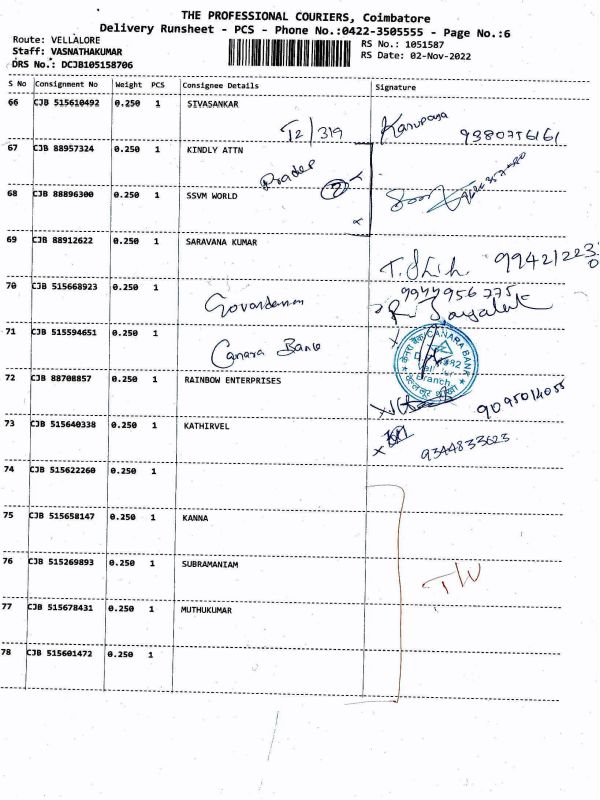 THE PROFESSIONAL COURIERS, Coimbatore
Delivery Runsheet - PCS - Phone No.:0422-3505555 - Page No.:6
Route: VELLALORE
Staff: VASNATHAKUMAR
DRS No.: DCJB105158706
RS No.: 1051587
RS Date: 02-Nov-2022
S No Consignment No Weight PCS Consignee Details Signature
66 CJB 515610492 0.250 1 SIVASANKAR
T2/319 Karupaya 9380756161
67 CJB 88957324 0.250 1 KINDLY ATTN
68 CJB 88896300 0.250 1 SSVM WORLD
69 CJB 88912622 0.250 1 SARAVANA KUMAR
70 CJB 515668923 0.250 1
9944956775
71 CJB 515594651 0.250 1
Canara Bank
CANARA BANK
Branch
72 CJB 88708857 0.250 1 RAINBOW ENTERPRISES
9095014055
73 CJB 515640338 0.250 1 KATHIRVEL
9344833623
74 CJB 515622260 0.250 1
75 CJB 515658147 0.250 1 KANNA
76 CJB 515269893 0.250 1 SUBRAMANIAM
77 CJB 515678431 0.250 1 MUTHUKUMAR
78 CJB 515601472 0.250 1